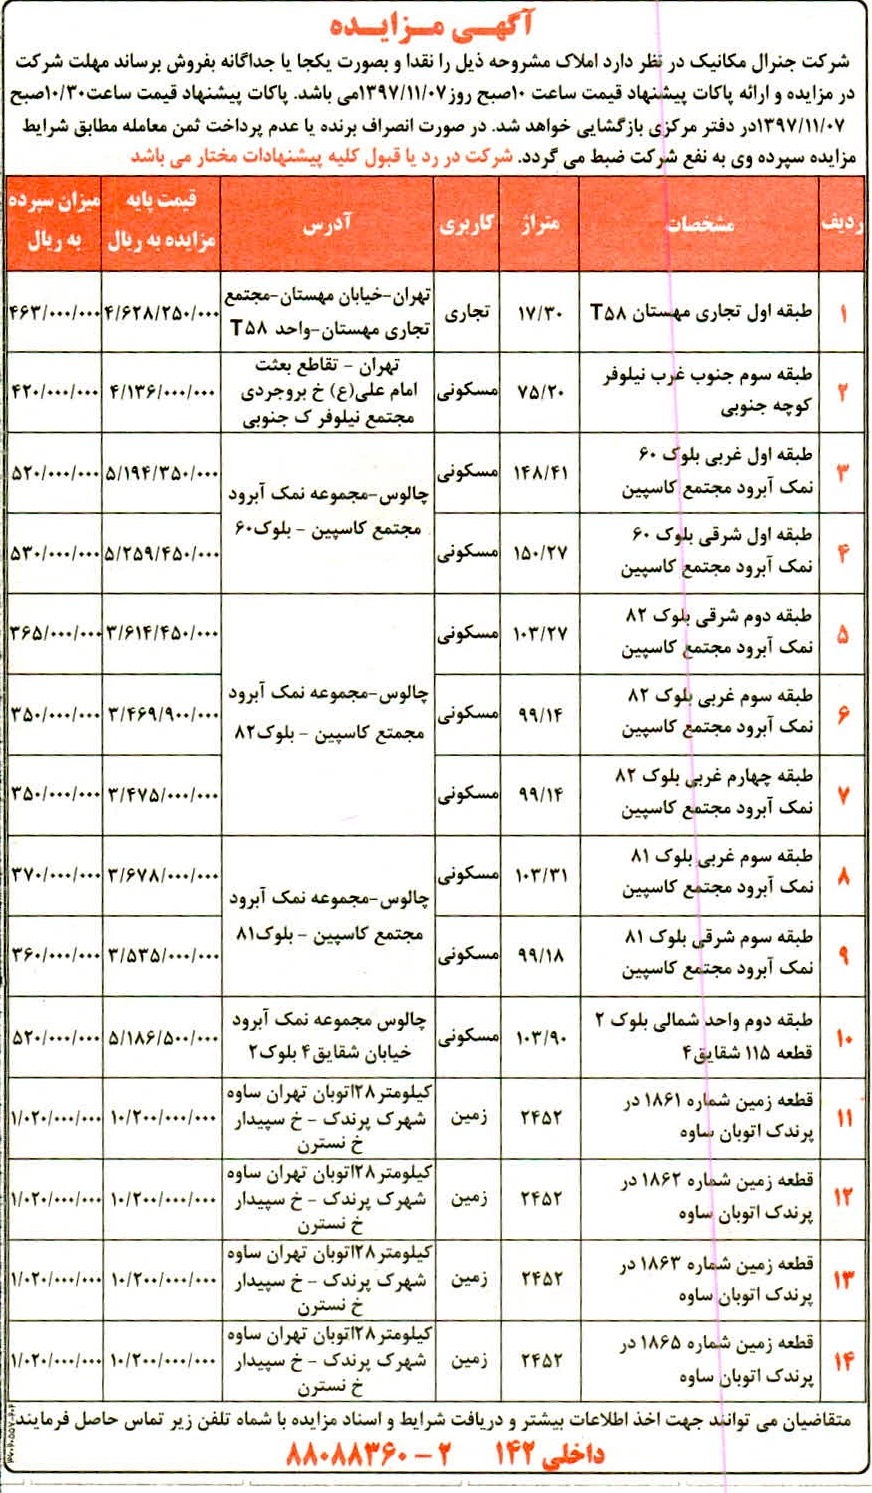 آگهی مزایده
شرکت جنرال مکانیک در نظر دارد املاک مشروحه ذیل را نقدا و بصورت یکجا یا جداگانه بفروش برساند مهلت شرکت
در مزایده و ارائه پاکات پیشنهاد قیمت ساعت ۱۰صبح روز۱۳۹۷/۱۱/۰۷می باشد. پاکات پیشنهاد قیمت ساعت۱۰/۳۰صبح
۱۳۹۷/۱۱/۰۷در دفتر مرکزی بازگشایی خواهد شد. در صورت انصراف برنده یا عدم پرداخت ثمن معامله مطابق شرایط
مزایده سپرده وی به نفع شرکت ضبط می گردد. شرکت در رد یا قبول کلیه پیشنهادات مختار می باشد
ردیف مشخصات متراژ کاربری آدرس قیمت پایه مزایده به ریال میزان سپرده به ریال
۱ طبقه اول تجاری مهستان T۵۸ ۱۷/۳۰ تجاری تهران-خیابان مهستان-مجتمع ۴/۶۲۸/۲۵۰/۰۰۰ ۴۶۳/۰۰۰/۰۰۰
تجاری مهستان-واحد T۵۸
۲ طبقه سوم جنوب غرب نیلوفر ۷۵/۲۰ مسکونی تهران - تقاطع بعثت ۴/۱۳۶/۰۰۰/۰۰۰ ۴۲۰/۰۰۰/۰۰۰
کوچه جنوبی امام علی(ع) خ بروجردی
مجتمع نیلوفر ک جنوبی
۳ طبقه اول غربی بلوک ۶۰ ۱۴۸/۴۱ مسکونی چالوس-مجموعه نمک آبرود ۵/۱۹۴/۳۵۰/۰۰۰ ۵۲۰/۰۰۰/۰۰۰
نمک آبرود مجتمع کاسپین مجتمع کاسپین - بلوک۶۰
۴ طبقه اول شرقی بلوک ۶۰ ۱۵۰/۲۷ مسکونی ۵/۲۵۹/۴۵۰/۰۰۰ ۵۳۰/۰۰۰/۰۰۰
نمک آبرود مجتمع کاسپین
۵ طبقه دوم شرقی بلوک ۸۲ ۱۰۳/۲۷ مسکونی ۳/۶۱۴/۴۵۰/۰۰۰ ۳۶۵/۰۰۰/۰۰۰
نمک آبرود مجتمع کاسپین
۶ طبقه سوم غربی بلوک ۸۲ ۹۹/۱۴ مسکونی چالوس-مجموعه نمک آبرود ۳/۴۶۹/۹۰۰/۰۰۰ ۳۵۰/۰۰۰/۰۰۰
نمک آبرود مجتمع کاسپین مجمتع کاسپین - بلوک۸۲
۷ طبقه چهارم غربی بلوک ۸۲ ۹۹/۱۴ مسکونی ۳/۴۷۵/۰۰۰/۰۰۰ ۳۵۰/۰۰۰/۰۰۰
نمک آبرود مجتمع کاسپین
۸ طبقه سوم غربی بلوک ۸۱ ۱۰۳/۳۱ مسکونی چالوس-مجموعه نمک آبرود ۳/۶۷۸/۰۰۰/۰۰۰ ۳۷۰/۰۰۰/۰۰۰
نمک آبرود مجتمع کاسپین مجتمع کاسپین - بلوک۸۱
۹ طبقه سوم شرقی بلوک ۸۱ ۹۹/۱۸ مسکونی ۳/۵۳۵/۰۰۰/۰۰۰ ۳۶۰/۰۰۰/۰۰۰
نمک آبرود مجتمع کاسپین
۱۰ طبقه دوم واحد شمالی بلوک ۲ ۱۰۳/۹۰ مسکونی چالوس مجموعه نمک آبرود ۵/۱۸۶/۵۰۰/۰۰۰ ۵۲۰/۰۰۰/۰۰۰
قطعه ۱۱۵ شقایق۴ خیابان شقایق۴ بلوک۲
۱۱ قطعه زمین شماره ۱۸۶۱ در ۲۴۵۲ زمین کیلومتر۲۸اتوبان تهران ساوه ۱۰/۲۰۰/۰۰۰/۰۰۰ ۱/۰۲۰/۰۰۰/۰۰۰
پرندک اتوبان ساوه شهرک پرندک - خ سپیدار
خ نسترن
۱۲ قطعه زمین شماره ۱۸۶۲ در ۲۴۵۲ زمین کیلومتر۲۸اتوبان تهران ساوه ۱۰/۲۰۰/۰۰۰/۰۰۰ ۱/۰۲۰/۰۰۰/۰۰۰
پرندک اتوبان ساوه شهرک پرندک - خ سپیدار
خ نسترن
۱۳ قطعه زمین شماره ۱۸۶۳ در ۲۴۵۲ زمین کیلومتر۲۸اتوبان تهران ساوه ۱۰/۲۰۰/۰۰۰/۰۰۰ ۱/۰۲۰/۰۰۰/۰۰۰
پرندک اتوبان ساوه شهرک پرندک - خ سپیدار
خ نسترن
۱۴ قطعه زمین شماره ۱۸۶۵ در ۲۴۵۲ زمین کیلومتر۲۸اتوبان تهران ساوه ۱۰/۲۰۰/۰۰۰/۰۰۰ ۱/۰۲۰/۰۰۰/۰۰۰
پرندک اتوبان ساوه شهرک پرندک - خ سپیدار
خ نسترن
متقاضیان می توانند جهت اخذ اطلاعات بیشتر و دریافت شرایط و اسناد مزایده با شماه تلفن زیر تماس حاصل فرمایند
۸۸۰۸۸۳۶۰ - ۲ داخلی ۱۴۲